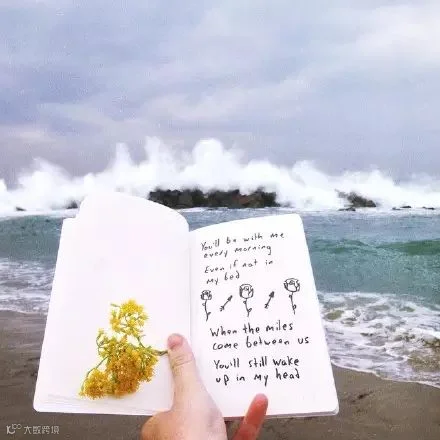 You'll be with me
every morning
Even if not in
my bed
When the miles
come between us
You'll still wake
up in my head
大数跨境